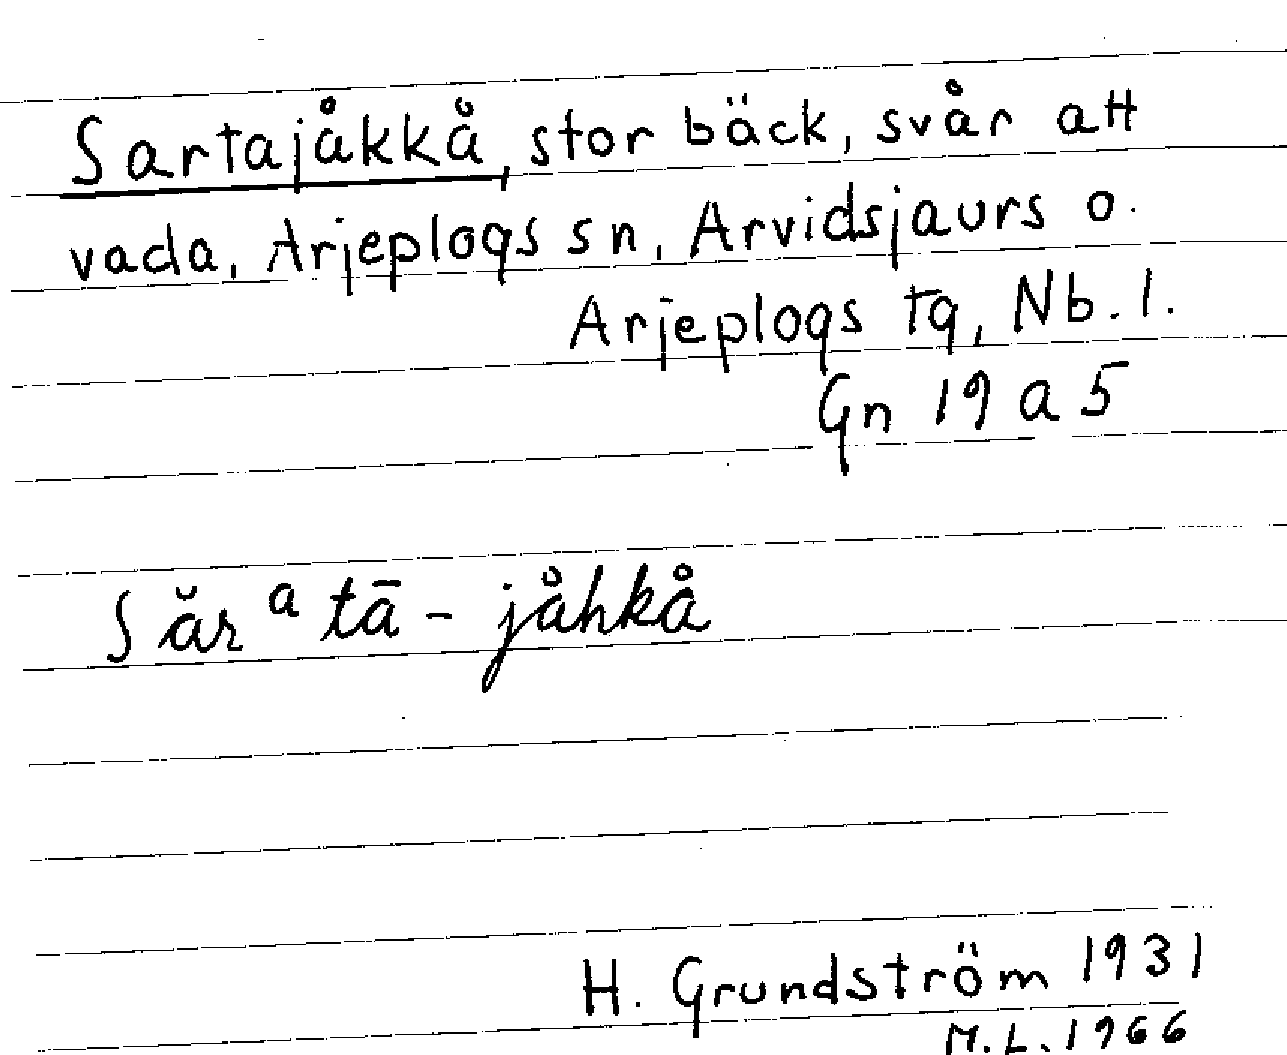 Sartajåkkå, stor bäck, svår att
vada, Arjeplogs sn, Arvidsjaurs o.
Arjeplogs tg, Nb. l.
Gn 19 a 5
Săr ᵃ tā - jåhkå
H. Grundström 1931
M.L. 1966